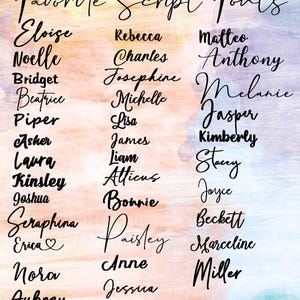 Favorite Script Fonts
Eloise
Noelle
Bridget
Beatrice
Piper
Asher
Laura
Kinsley
Joshua
Seraphina
Erica
Nora
Aubrey
Rebecca
Charles
Josephine
Michelle
Lisa
James
Liam
Atticus
Bonnie
Paisley
Anne
Jessica
Matteo
Anthony
Melanie
Jasper
Kimberly
Stacey
Joyce
Beckett
Marceline
Miller